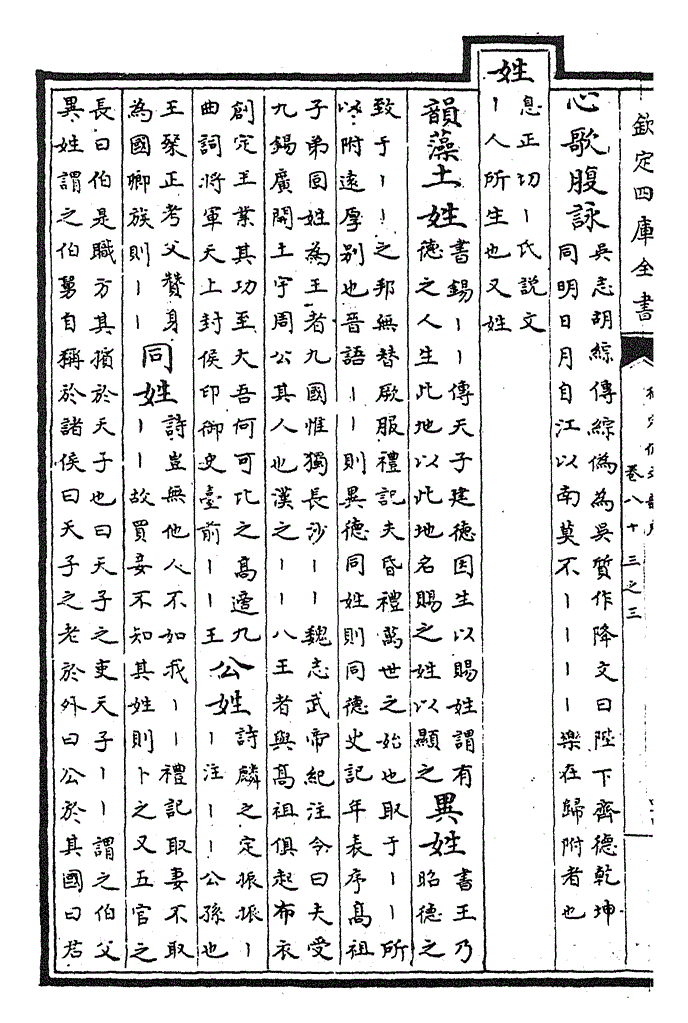 欽定四庫全書
卷八十三之三
心歌腹詠
吳志胡綜傳綜偽為吳質作降文曰陛下齊德乾坤
同明日月自江以南莫不丨丨丨丨樂在歸附者也
姓
息正切丨氏說文
丨人所生也又姓
韻藻土姓
書錫丨丨傳天子建德因生以賜姓謂有
德之人生此地以此地名賜之姓以顯之
異姓
書王乃
昭德之
致于丨丨之邦無替厥服禮記夫昏禮萬世之始也取于丨丨所
以附遠厚别也晉語丨丨則異德同姓則同德史記年表序高祖
子弟同姓為王者九國惟獨長沙丨丨魏志武帝紀注令曰夫受
九錫廣開土宇周公其人也漢之丨丨八王者與高祖俱起布衣
創定王業其功至大吾何可比之高適九
曲詞將軍天上封侯印御史臺前丨丨王
公姓
詩麟之定振振丨
丨注丨丨公孫也
王粲正考父贊身
為國卿族則丨丨
同姓
詩豈無他人不如我丨丨禮記取妻不取
丨丨故買妾不知其姓則卜之又五官之
長曰伯是職方其擯於天子也曰天子之吏天子丨丨謂之伯父
異姓謂之伯舅自稱於諸侯曰天子之老於外曰公於其國曰君